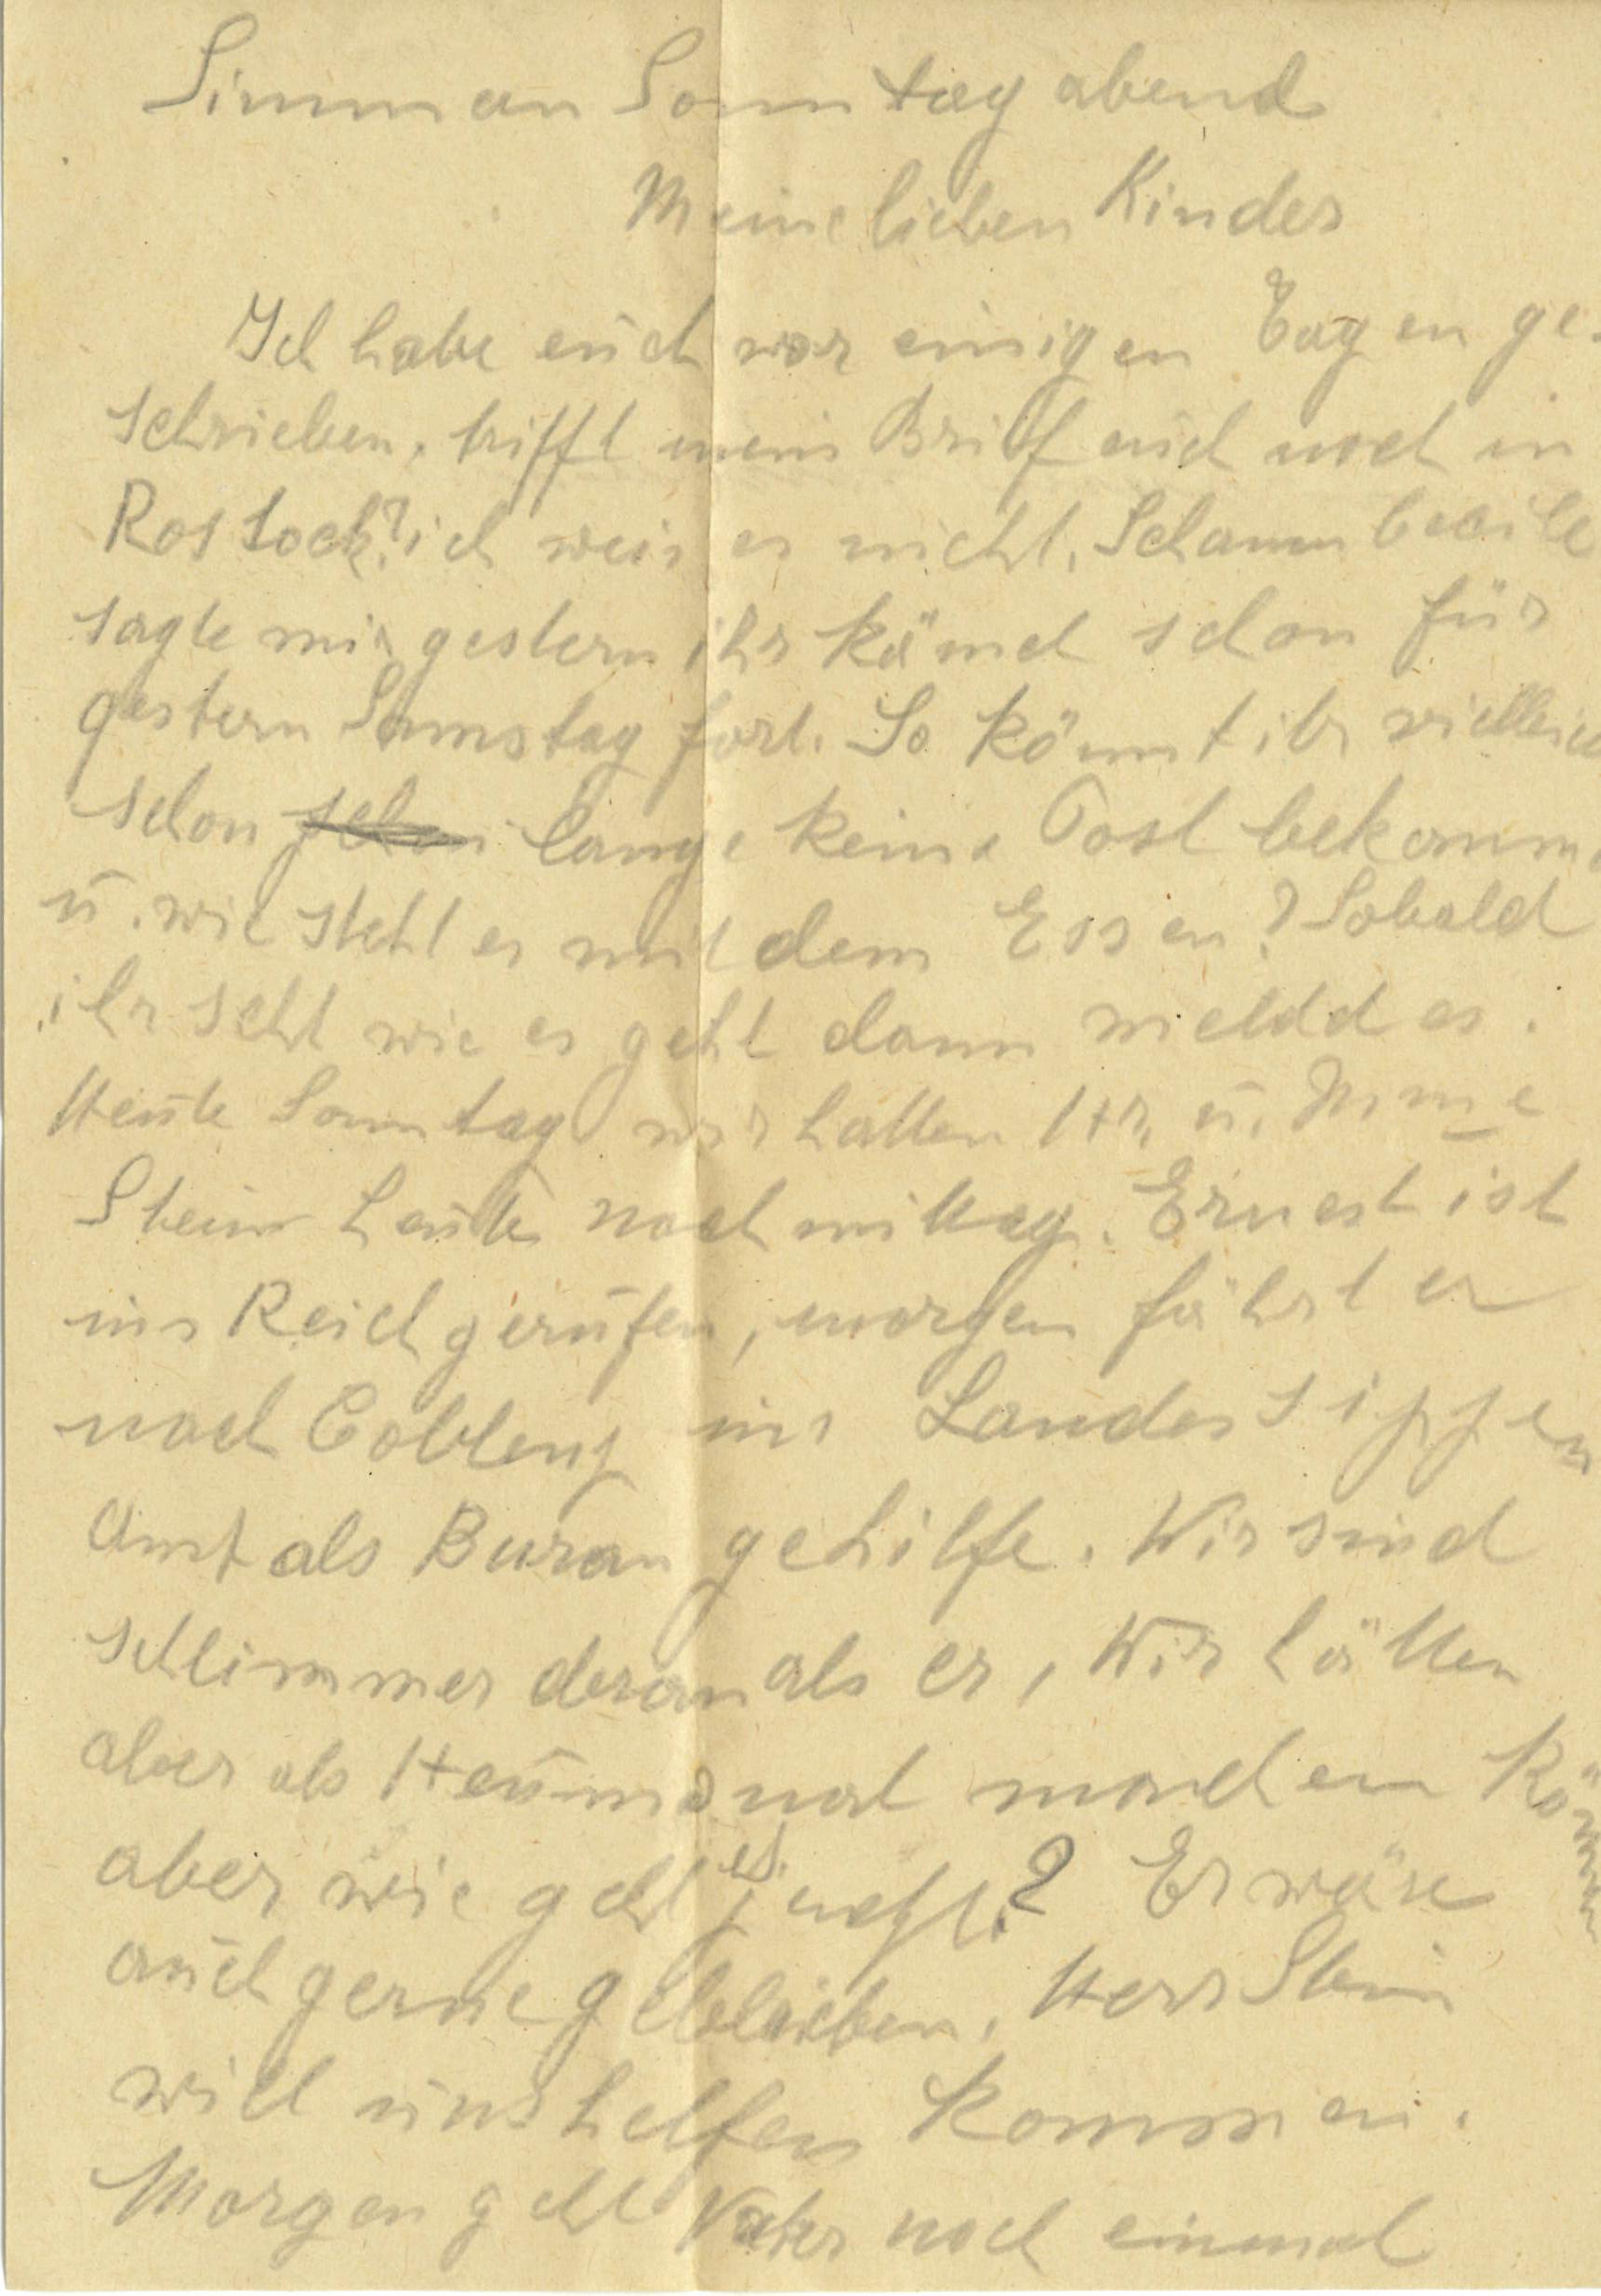 Simman Sonntag abend
Meine lieben Kinder
Ich habe euch vor einigen Tagen ge-
schrieben, trifft mein Brief euch noch in
Rostock? ich weis es nicht. Schammbecile
sagte mir gestern ihr kämet schon für
gestern Samstag fort. So könnt ihr vielleich
schon lange keine Post bekomm
u. wie steht es mit dem Essen? Sobald
ihr seht wie es geht dann meldd es.
Heute Sonntag wir hatten Hr. u. Mme
Stein heute nachmittag. Ernest ist
ins Reich gerufen, morgen fährt er
nach Coblenz ins Landessippen
amt als Burau gehilfe. Wir sind
schlimmer deran als er, Wir hätten
aber als Heumonat machen können
aber wie geht es jetzt? Er wäre
auch gerne geblieben. Herr Stein
will uns helfen kommen.
Morgen geht Vater noch einmal